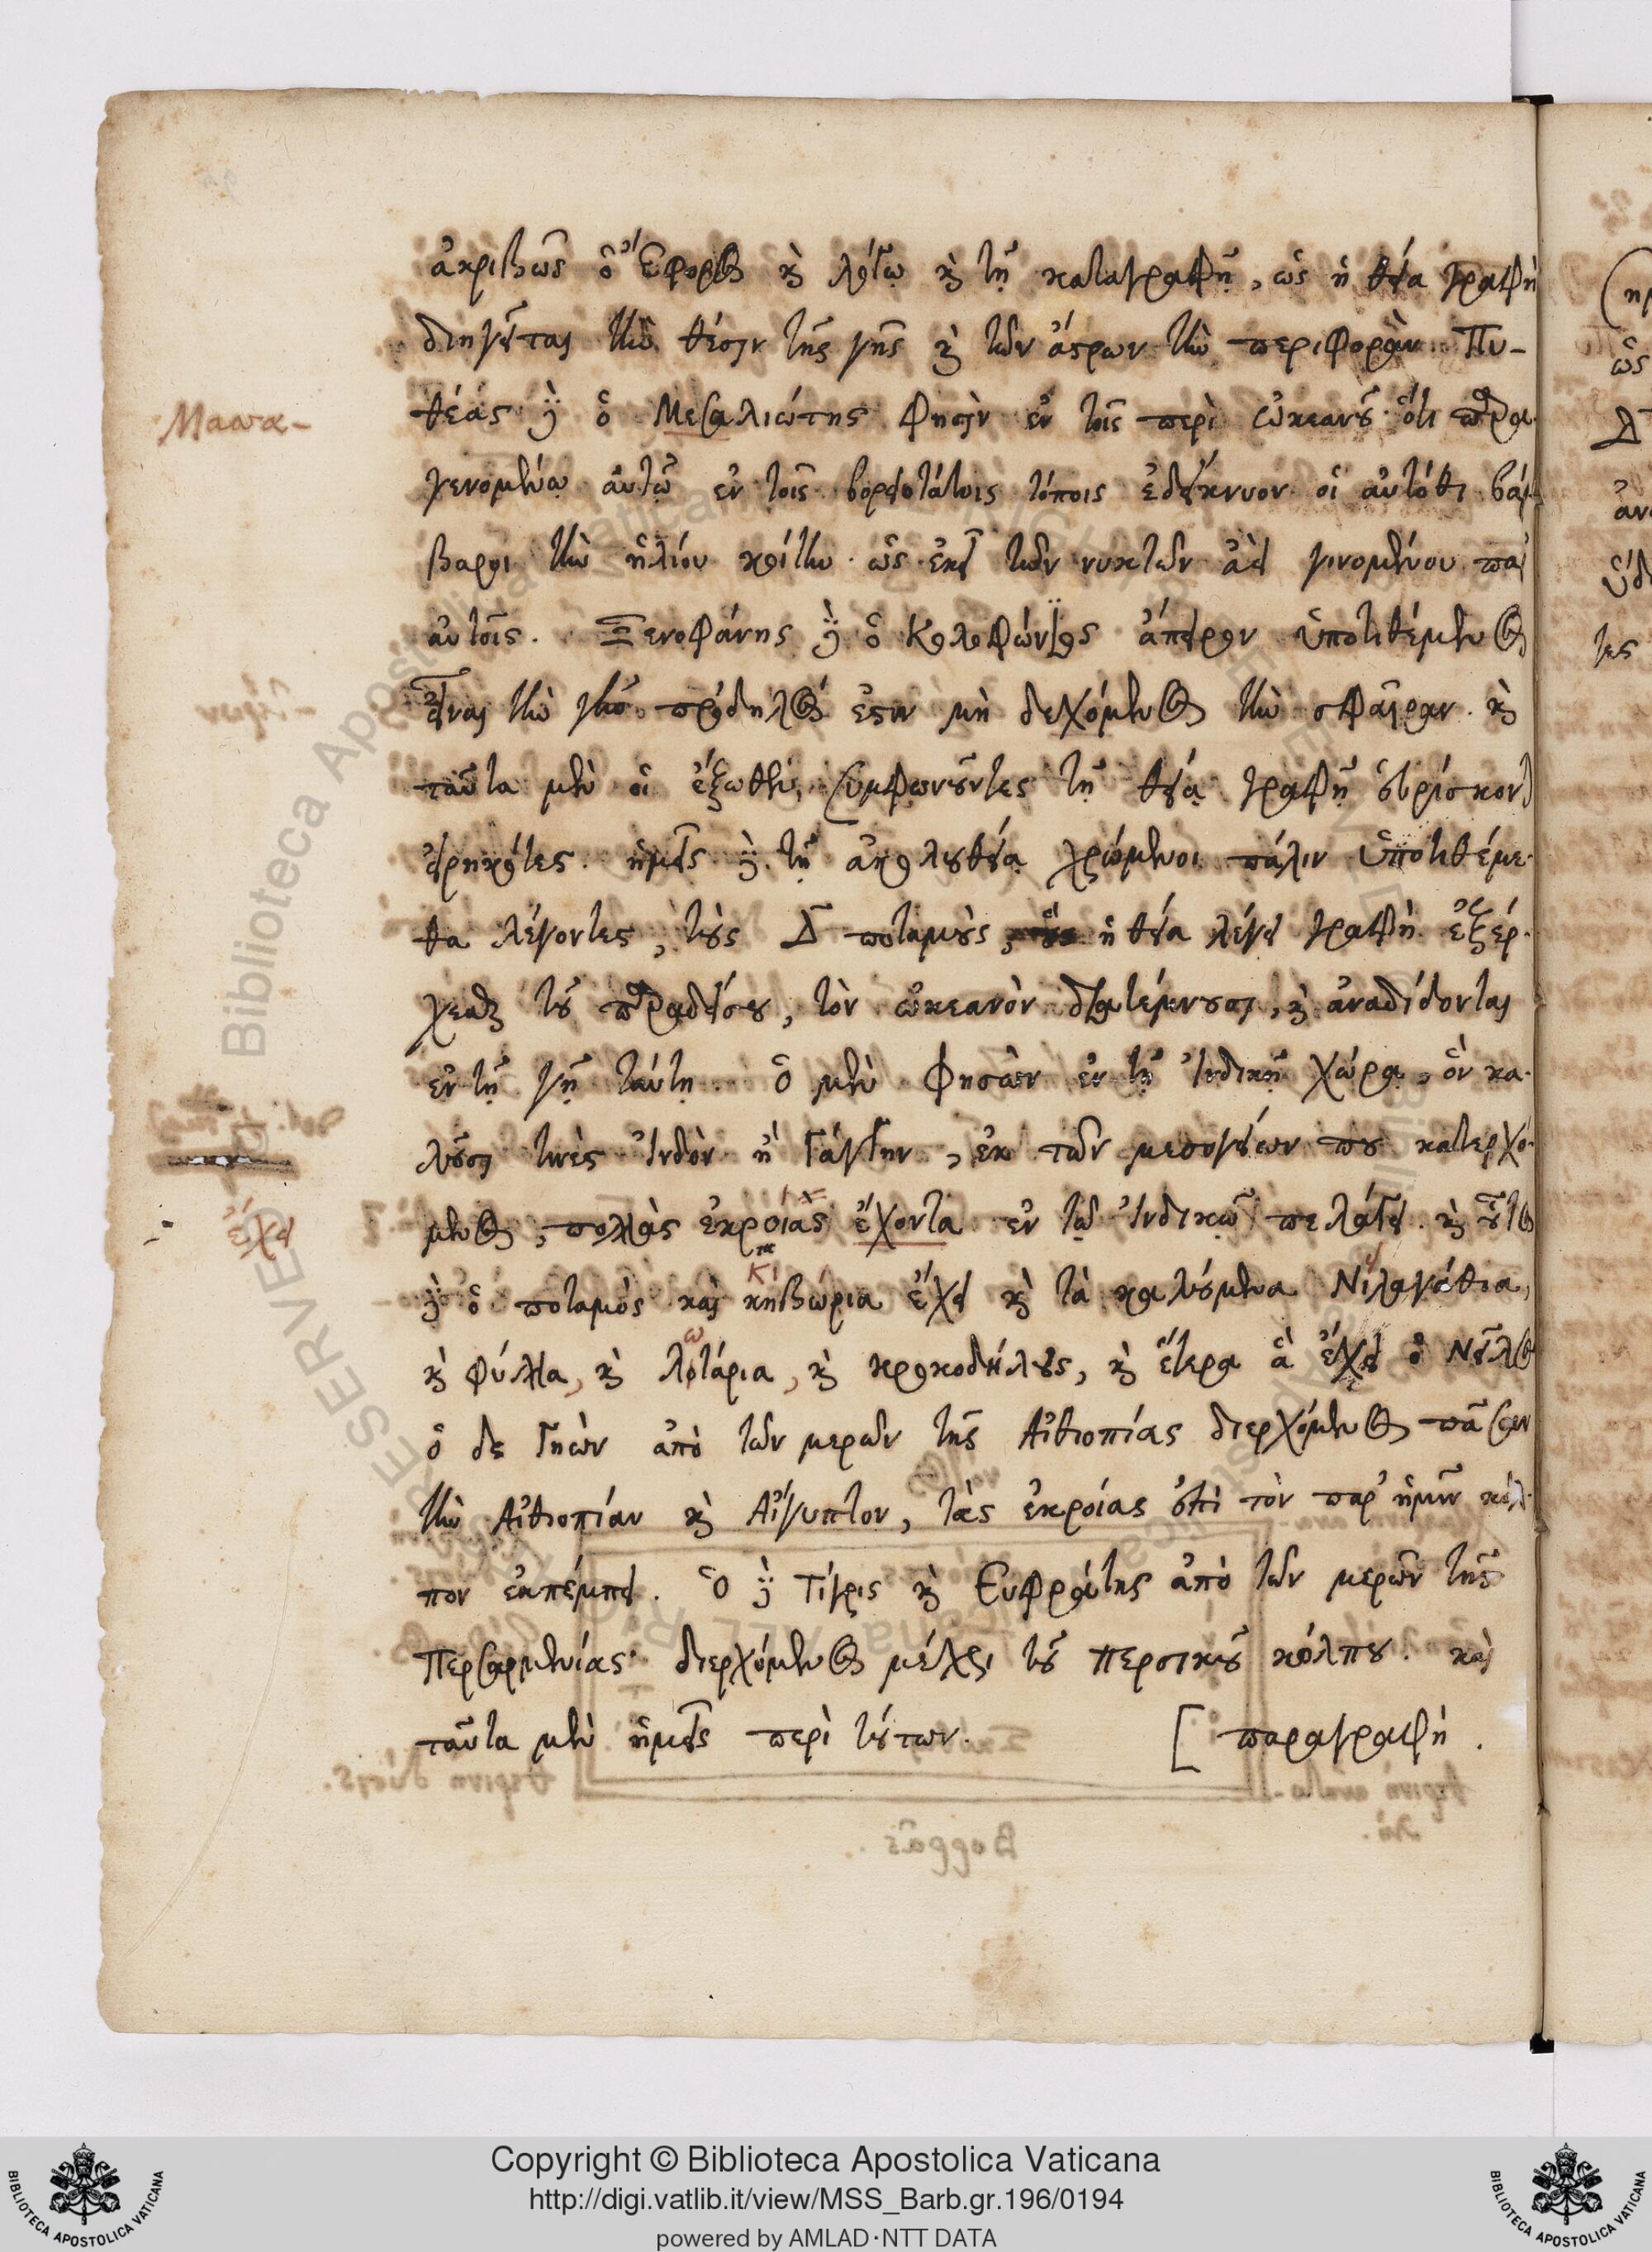 ἀκριβῶς ὁ Ἔφορος καὶ λόγῳ καὶ τῇ καταγραφῇ, ὡς ἡ θεία γραφὴ
διηγεῖται τὴν θέσιν τῆς γῆς καὶ τῶν ἄστρων τὴν περιφοράν. Πυ-
Μασσα-
θέας δὲ ὁ Μεσαλιώτης φησὶν ἐν τοῖς περὶ ὠκεανοῦ ὅτι παρα
γενομένῳ αὐτῷ ἐν τοῖς βορειοτάτοις τόποις ἐδείκνυον οἱ αὐτόθι βάρ
βαροι τὴν ἡλίου κοίτην. ὡς ἐκεῖ τῶν νυκτῶν ἀεὶ γινομένου παρ
αὐτοῖς. Ξενοφάνης δὲ ὁ Κολοφώνιος ἄπειρον ὑποτιθέμενος
εἶναι τὴν γῆν πρόδηλός ἐστιν μὴ δεχόμενος τὴν σφαῖραν. καὶ
ταῦτα μὲν οἱ ἔξωθεν, συμφωνοῦντες τῇ θείᾳ γραφῇ εὑρίσκονται
εἰρηκότες. ἡμεῖς δὲ τῇ ἀκολουθείᾳ χρώμενοι πάλιν ὑποτιθέμε-
θα λέγοντες, τοὺς Δ ποταμοὺς, ἡ θεία λέγει γραφὴ ἐξέρ-
χεσθαι τοῦ παραδείσου, τὸν ὠκεανὸν διατέμνουσι, καὶ ἀναδίδονται
ἐν τῇ γῇ ταύτῃ. Ὁ μὲν Φησὼν ἐν τῇ Ἰνδικῇ χώρᾳ, ὃν κα-
λοῦσι τινὲς Ἰνδὸν ἢ Γάγγην, ἐκ τῶν μεσογείων που κατερχό-
ἔχει
μενος, πολλὰς ἐκροίας ἔχοντα ἐν τῷ Ἰνδικῷ πελάγει. καὶ οὗτος
κι
δὲ ὁ ποταμὸς καὶ κηβώρια ἔχει καὶ τὰ καλούμενα Νιλαγάθια,
ω
καὶ φύλλα, καὶ λοτάρια, καὶ κροκοδήλους, καὶ ἕτερα ἃ ἔχει ὁ Νεῖλος
ὁ δε Γηὼν ἀπὸ τῶν μερῶν τῆς Αἰθιοπίας διερχόμενος πᾶσαν
τὴν Αἰθιοπίαν καὶ Αἴγυπτον, τὰς ἐκροίας ἐπὶ τὸν παρ' ἡμῖν κόλ-
πον ἐκπέμπει. Ὁ δὲ Τίγρις καὶ Ευφράτης ἀπὸ τῶν μερῶν τῆς
Περσαρμενίας διερχόμενος μέχρι τοῦ Περσικοῦ κόλπου. καὶ
ταῦτα μὲν ἡμεῖς περὶ τούτων. [ παραγραφή.
Copyright © Biblioteca Apostolica Vaticana
http://digi.vatlib.it/view/MSS_Barb.gr.196/0194
powered by AMLAD·NTT DATA
BIBLIOTECA APOSTOLICA VATICANA
BIBLIOTECA APOSTOLICA VATICANA